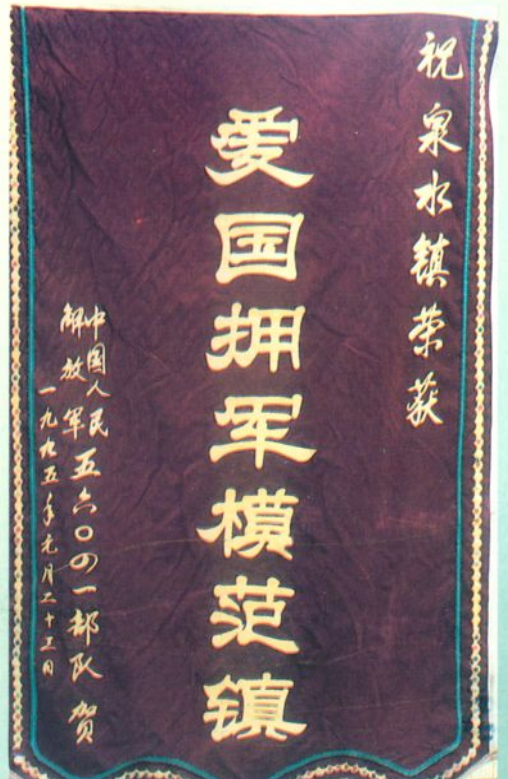 祝泉水镇荣获
爱国拥军模范镇
中国人民
解放军
五六〇四一部队 贺
一九九五年元月二十三日